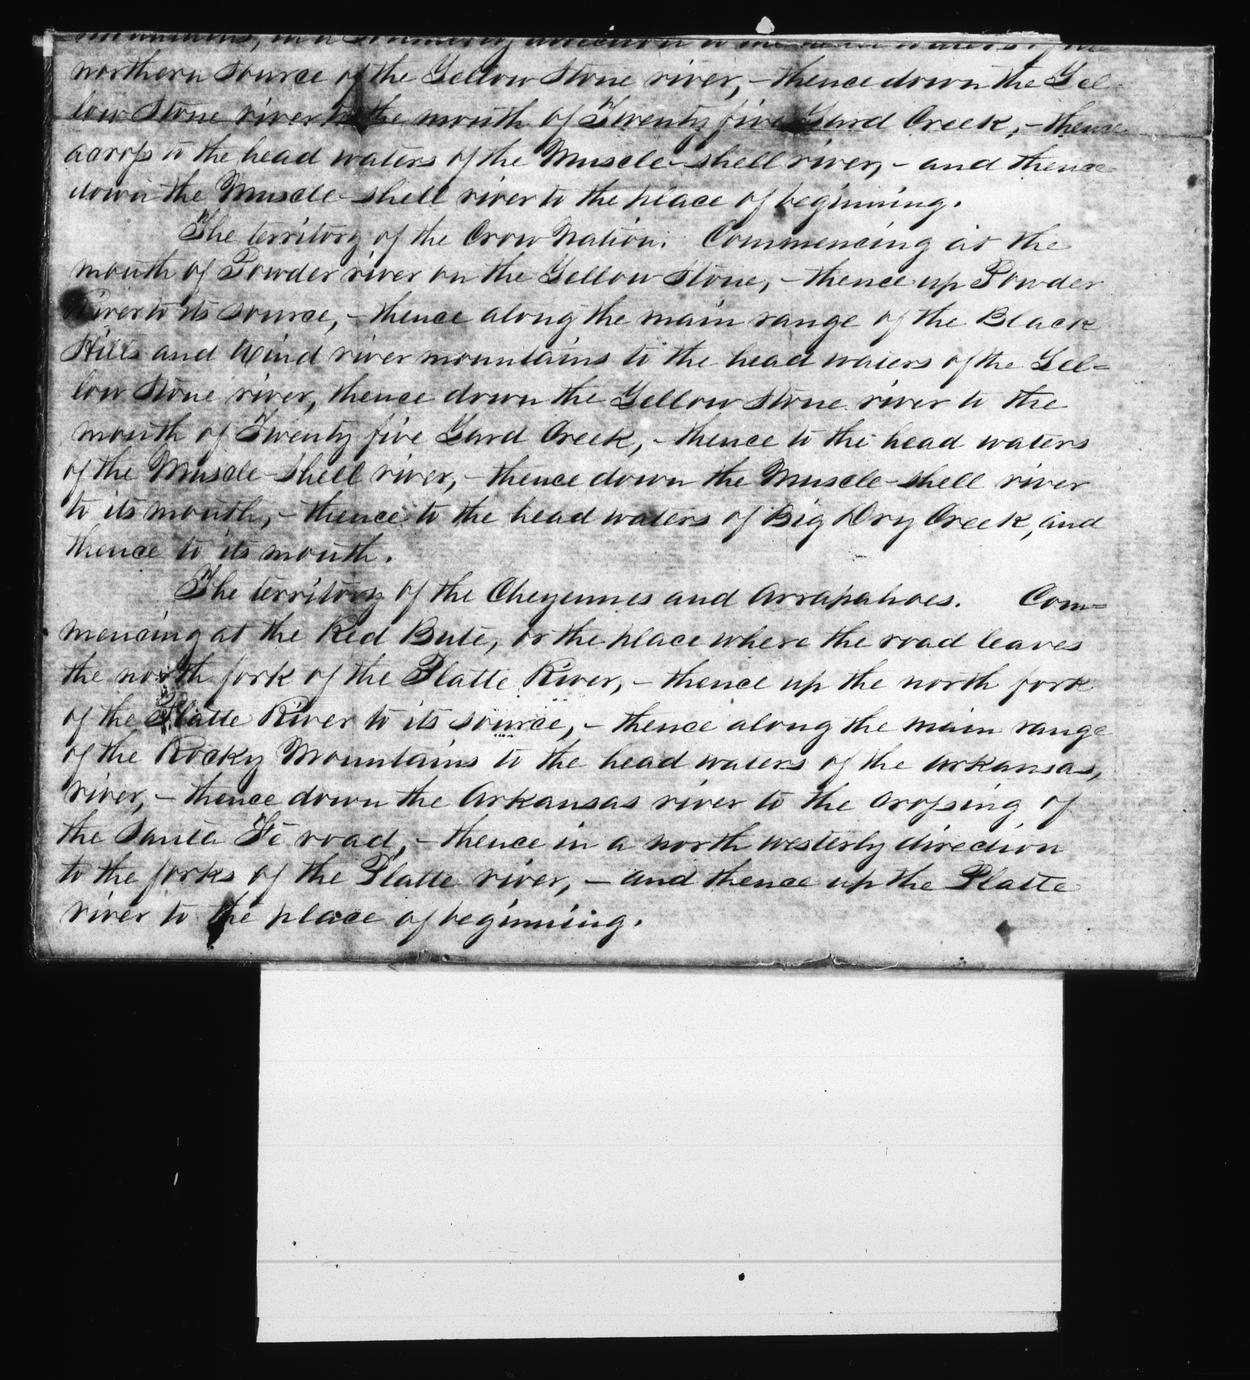 mountains, in a southerly direction to the head waters of the
northern source of the Yellow Stone river, – thence down the Yel-
low Stone river to the mouth of Twenty five Yard Creek, – thence
across to the head waters of the Muscle-shell river, – and thence
down the Muscle-shell river to the place of beginning.
The territory of the Crow Nation. Commencing at the
mouth of Powder river on the Yellow Stone, – thence up Powder
River to its source, – thence along the main range of the Black
Hills and Wind river mountains to the head waters of the Yel-
low Stone river, thence down the Yellow Stone river to the
mouth of Twenty five Yard Creek, – thence to the head waters
of the Muscle-shell river, – thence down the Muscle-shell river
to its mouth, – thence to the head waters of Big Dry Creek, and
thence to its mouth.
The territory of the Cheyennes and Arrapahoes. Com-
mencing at the Red Bute, or the place where the road leaves
the north fork of the Platte River, – thence up the north fork
of the Platte River to its source, – thence along the main range
of the Rocky Mountains to the head waters of the Arkansas,
river, – thence down the Arkansas river to the crossing of
the Santa Fe road, – thence in a north westerly direction
to the forks of the Platte river, – and thence up the Platte
river to the place of beginning.